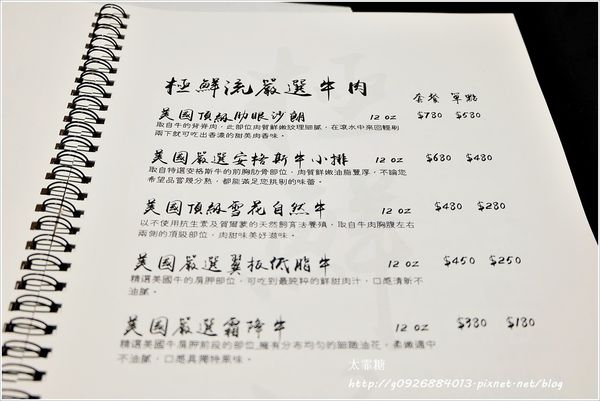 極鮮流嚴選牛肉
套餐 單點
美國頂級肋眼沙朗 12 oz $730 $530
取自牛的背脊肉，此部位肉質鮮嫩紋理細膩，在滾水中來回輕涮
兩下就可吃出香濃的甜美肉香味。
美國嚴選安格斯牛小排 12 oz $680 $480
取自特選安格斯牛的前胸肋骨部位，肉質鮮嫩油脂豐厚，不論您
希望品嘗幾分熟，都能滿足您挑剔的味蕾。
美國頂級雪花自然牛 12 oz $480 $280
以不使用抗生素及賀爾蒙的天然飼育法養殖，取自牛肉胸腹左右
兩側的頂級部位，肉甜味美好滋味。
美國嚴選翼板低脂牛 12 oz $450 $250
精選美國牛的肩胛部位，可吃到最純粹的鮮甜肉汁，口感清新不
油膩。
美國嚴選霜降牛 12 oz $380 $180
精選美國牛肩胛前段的部位，擁有分布均勻的細緻油花，柔嫩適中
不油膩，口感具獨特風味。
太霏糖
http://g0926884013.pixnet.net/blog